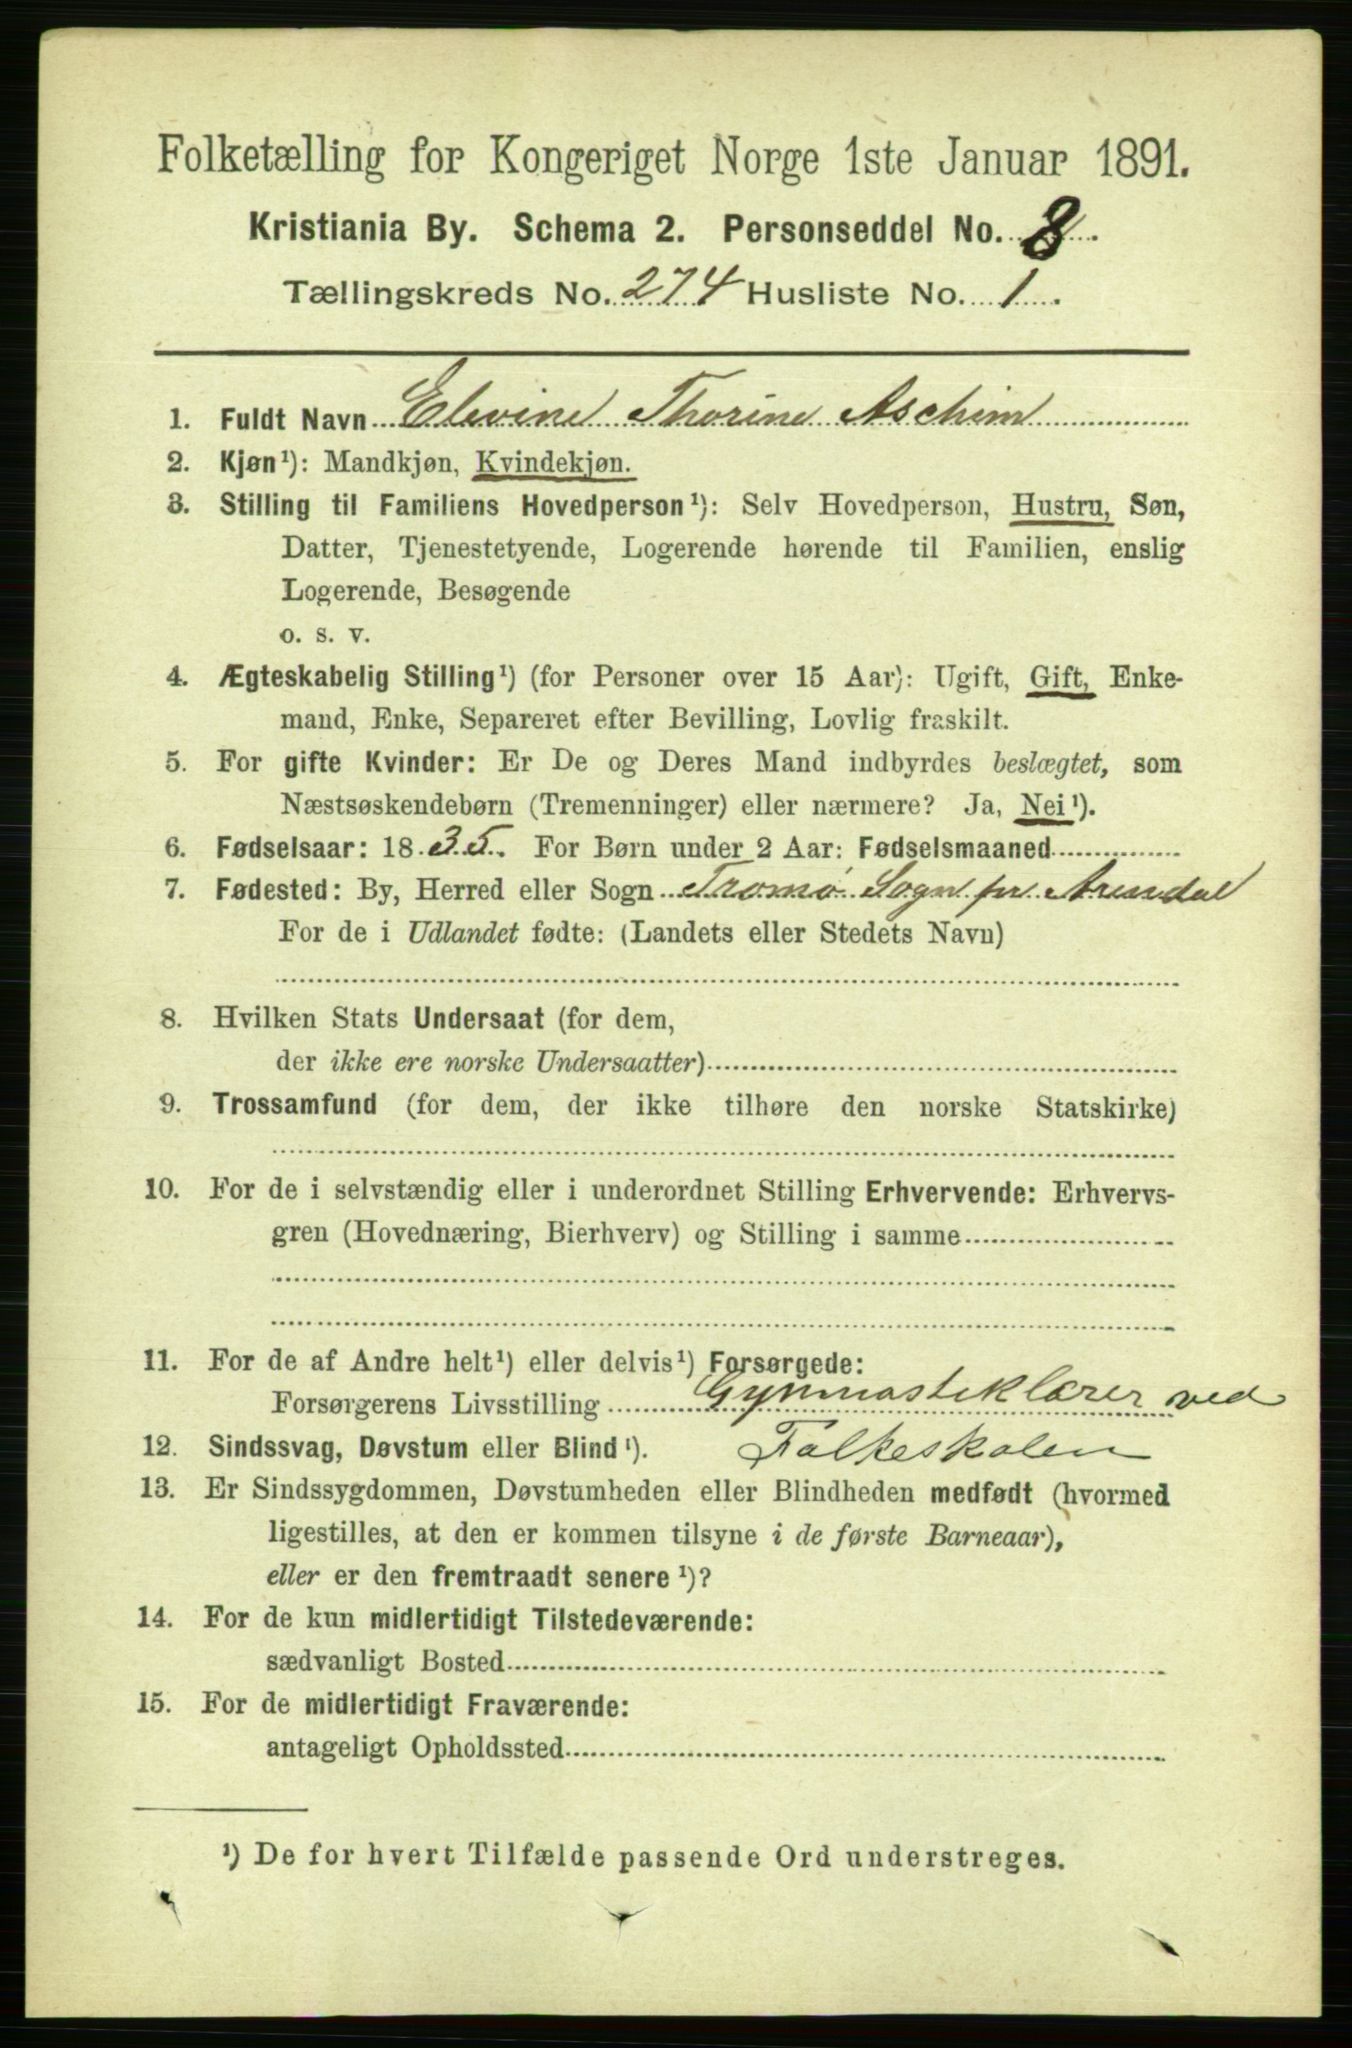 Folketælling for Kongeriget Norge 1ste Januar 1891.
Kristiania By. Schema 2. Personseddel No. 8.
Tællingskreds No. 274 Husliste No. 1.
1. Fuldt Navn Elevine Thorine Aschim
2. Kjøn¹): Mandkjøn, Kvindekjøn.
3. Stilling til Familiens Hovedperson¹): Selv Hovedperson, Hustru, Søn,
Datter, Tjenestetyende, Logerende hørende til Familien, enslig
Logerende, Besøgende
o. s. v.
4. Ægteskabelig Stilling¹) (for Personer over 15 Aar): Ugift, Gift, Enke-
mand, Enke, Separeret efter Bevilling, Lovlig fraskilt.
5. For gifte Kvinder: Er De og Deres Mand indbyrdes beslægtet, som
Næstsøskendebørn (Tremenninger) eller nærmere? Ja, Nei¹).
6. Fødselsaar: 1835. For Børn under 2 Aar: Fødselsmaaned
7. Fødested: By, Herred eller Sogn Tromø Sogn pr Arendal
For de i Udlandet fødte: (Landets eller Stedets Navn)
8. Hvilken Stats Undersaat (for dem,
der ikke ere norske Undersaatter)
9. Trossamfund (for dem, der ikke tilhøre den norske Statskirke)
10. For de i selvstændig eller i underordnet Stilling Erhvervende: Erhvervs-
gren (Hovednæring, Bierhverv) og Stilling i samme
11. For de af Andre helt¹) eller delvis¹) Forsørgede:
Forsørgerens Livsstilling Gymnastiklærer ved
12. Sindssvag, Døvstum eller Blind¹). Folkeskolen
13. Er Sindssygdommen, Døvstumheden eller Blindheden medfødt (hvormed
ligestilles, at den er kommen tilsyne i de første Barneaar),
eller er den fremtraadt senere¹)?
14. For de kun midlertidigt Tilstedeværende:
sædvanligt Bosted
15. For de midlertidigt Fraværende:
antageligt Opholdssted
¹) De for hvert Tilfælde passende Ord understreges.